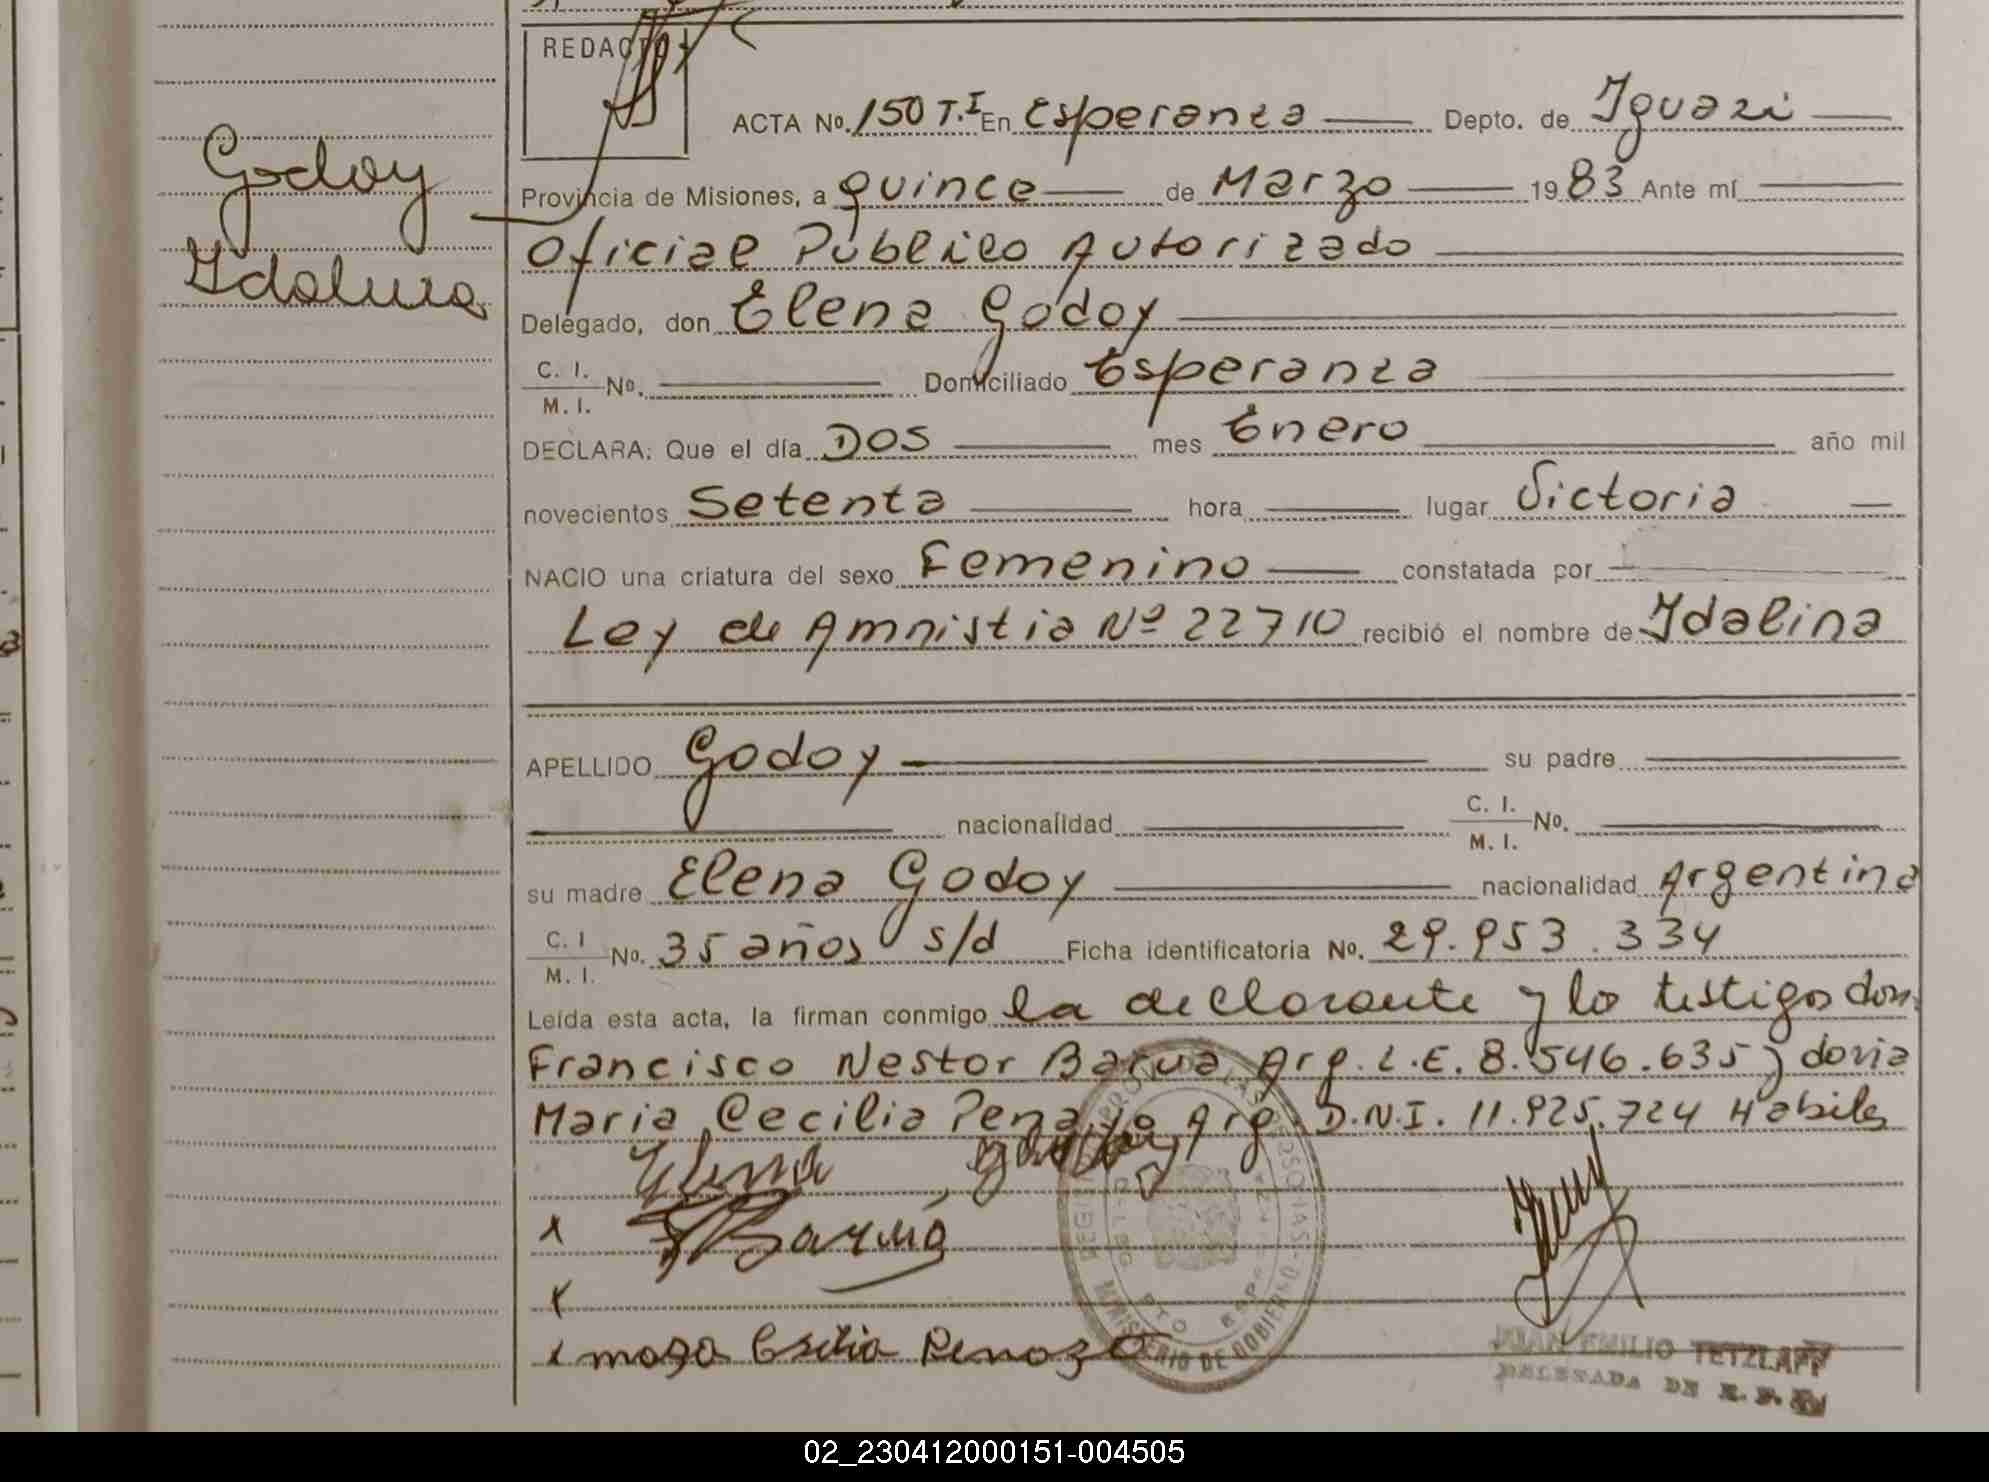 REDACTO
Godoy
Idalina
ACTA No. 150 T.I En Esperanza Depto. de Iguazú
Provincia de Misiones, a quince de Marzo 1983 Ante mí
Oficial Público Autorizado
Delegado, don Elena Godoy
C. I.
M. I. No. Domiciliado Esperanza
DECLARA: Que el día DOS mes Enero año mil
novecientos Setenta hora lugar Victoria
NACIO una criatura del sexo Femenino constatada por
Ley de Amnistia Nº 22710 recibió el nombre de Idalina
APELLIDO Godoy su padre
nacionalidad C. I.
M. I. No.
su madre Elena Godoy nacionalidad Argentina
C. I
M. I. No. 35 años s/d Ficha identificatoria No. 29.953.334
Leída esta acta, la firman conmigo la declarante y lo testigos don
Francisco Nestor Barua Arg. L.E. 8.546.635 y doña
Maria Cecilia Penayo Arg. D.N.I. 11.925.724 Habiles
Elena Godoy
x Barúa
x
x Cecilia Penazo
MINISTERIO DE GOBIERNO
JUAN EMILIO TETZLAFF
DELEGADA DE
02_230412000151-004505